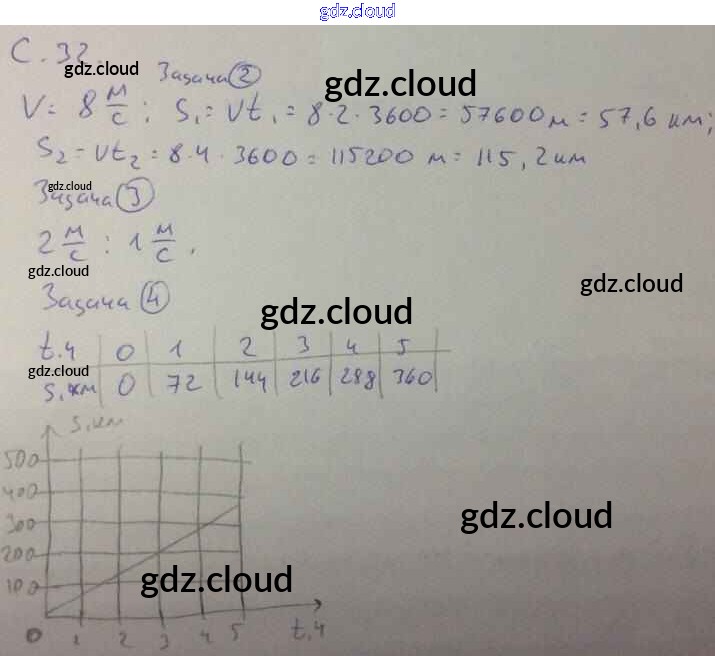 gdz.cloud
С. 32.
gdz.cloud
Задача 2
gdz.cloud
V = 8 м/с ; S₁ = Vt₁ = 8·2·3600 = 57600 м = 57,6 км;
S₂ = Vt₂ = 8·4·3600 = 115200 м = 115,2 км
gdz.cloud
Задача 3
2 м/с ; 1 м/с .
gdz.cloud
gdz.cloud
Задача 4
gdz.cloud
t.ч 0 1 2 3 4 5
gdz.cloud
S, км 0 72 144 216 288 360
S, км
500
400
300
gdz.cloud
200
100
gdz.cloud
0 1 2 3 4 5 t,ч